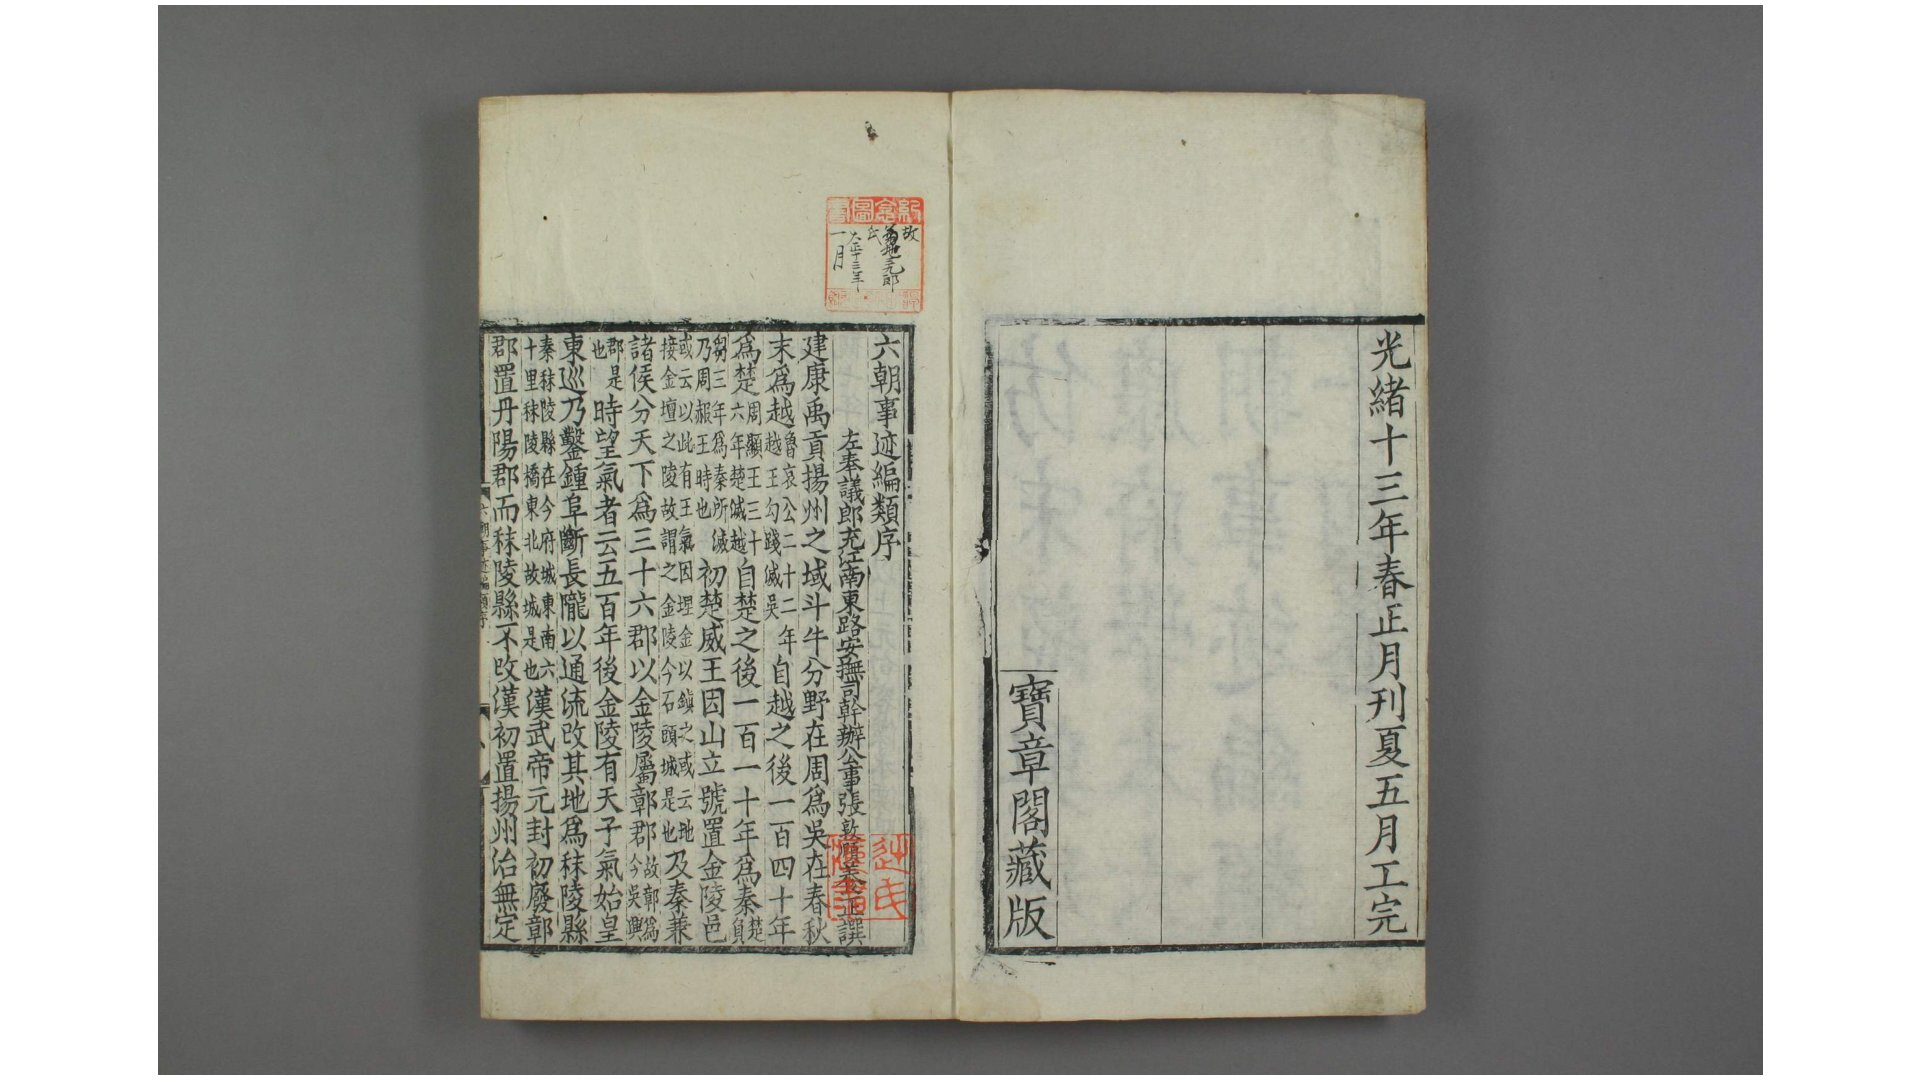 光緒十三年春正月刊夏五月工完
寶章閣藏版
故
氏
大正十三年
一月
六朝事迹編類序
左奉議郎充江南東路安撫司幹辦公事張敦頤養正譔
建康禹貢揚州之域斗牛分野在周爲吳在春秋
末爲越魯哀公二十二年越王勾踐滅吳自越之後一百四十年
爲楚周顯王三十六年楚滅越自楚之後一百一十年爲秦楚負
芻三年爲秦所滅乃周赧王時也初楚威王因山立號置金陵邑
或云以此有王氣因埋金以鎮之或云地接金壇之陵故謂之金陵今石頭城是也及秦兼
諸侯分天下爲三十六郡以金陵屬鄣郡故鄣爲今吳興
郡是也時望氣者云五百年後金陵有天子氣始皇
東巡乃鑿鍾阜斷長隴以通流改其地爲秣陵縣
秦秣陵縣在今府城東南六十里秣陵橋東北故城是也漢武帝元封初廢鄣
郡置丹陽郡而秣陵縣不改漢初置揚州治無定